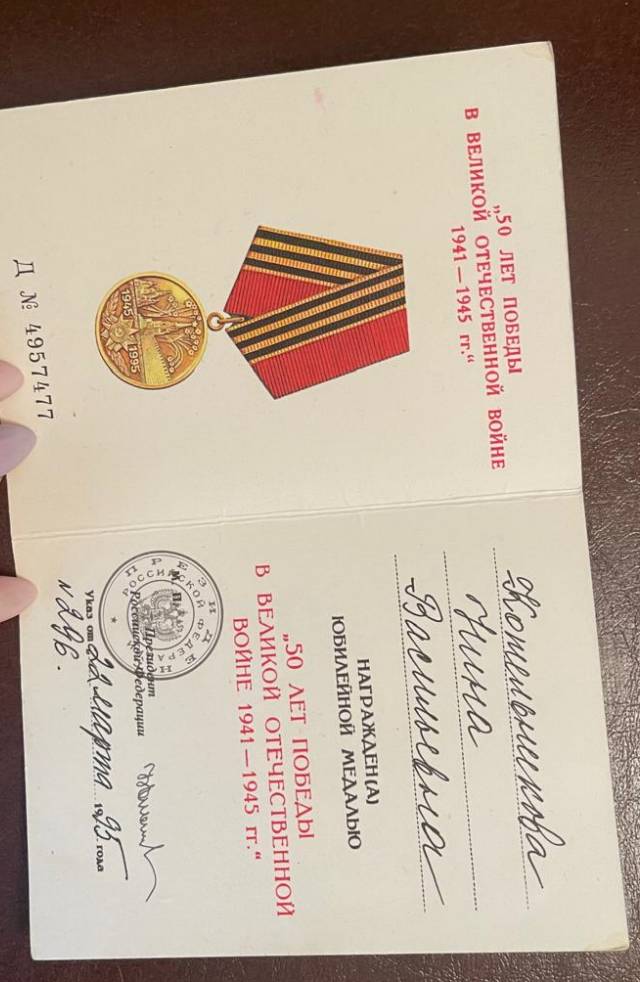 „50 ЛЕТ ПОБЕДЫ
В ВЕЛИКОЙ ОТЕЧЕСТВЕННОЙ ВОЙНЕ
1941—1945 гг.“
1945
1995
Д № 4957477
Котельникова
Нина
Васильевна
НАГРАЖДЕН(А)
ЮБИЛЕЙНОЙ МЕДАЛЬЮ
„50 ЛЕТ ПОБЕДЫ
В ВЕЛИКОЙ ОТЕЧЕСТВЕННОЙ
ВОЙНЕ 1941—1945 гг.“
Президент
Российской Федерации
Указ от 22 марта 1995 года
N 296.